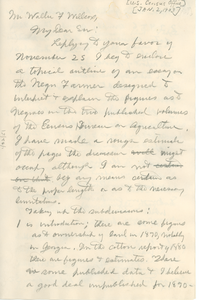 (U.S. Census Office)
Mr. Walter F. Willcox,
My dear Sir:
Replying to your favor of
November 25 I beg to enclose
a topical outline of an essay on
the Negro Farmer designed to
interpret & explain the figures as to
Negroes in the two published volumes
of the Census Bureau on Agriculture.
I have made a rough estimate
of the pages the discussion might
occupy although I am not
by any means certain as
to the proper length or as to the necessary
limitations.
Taking up the subdivisions:
1 is introduction; there are some figures
as to ownership of land in 1870, notably
in Georgia. In the cotton report of 1880
there are figures & estimates. There
are some published data & I believe
a good deal unpublished for 1890—